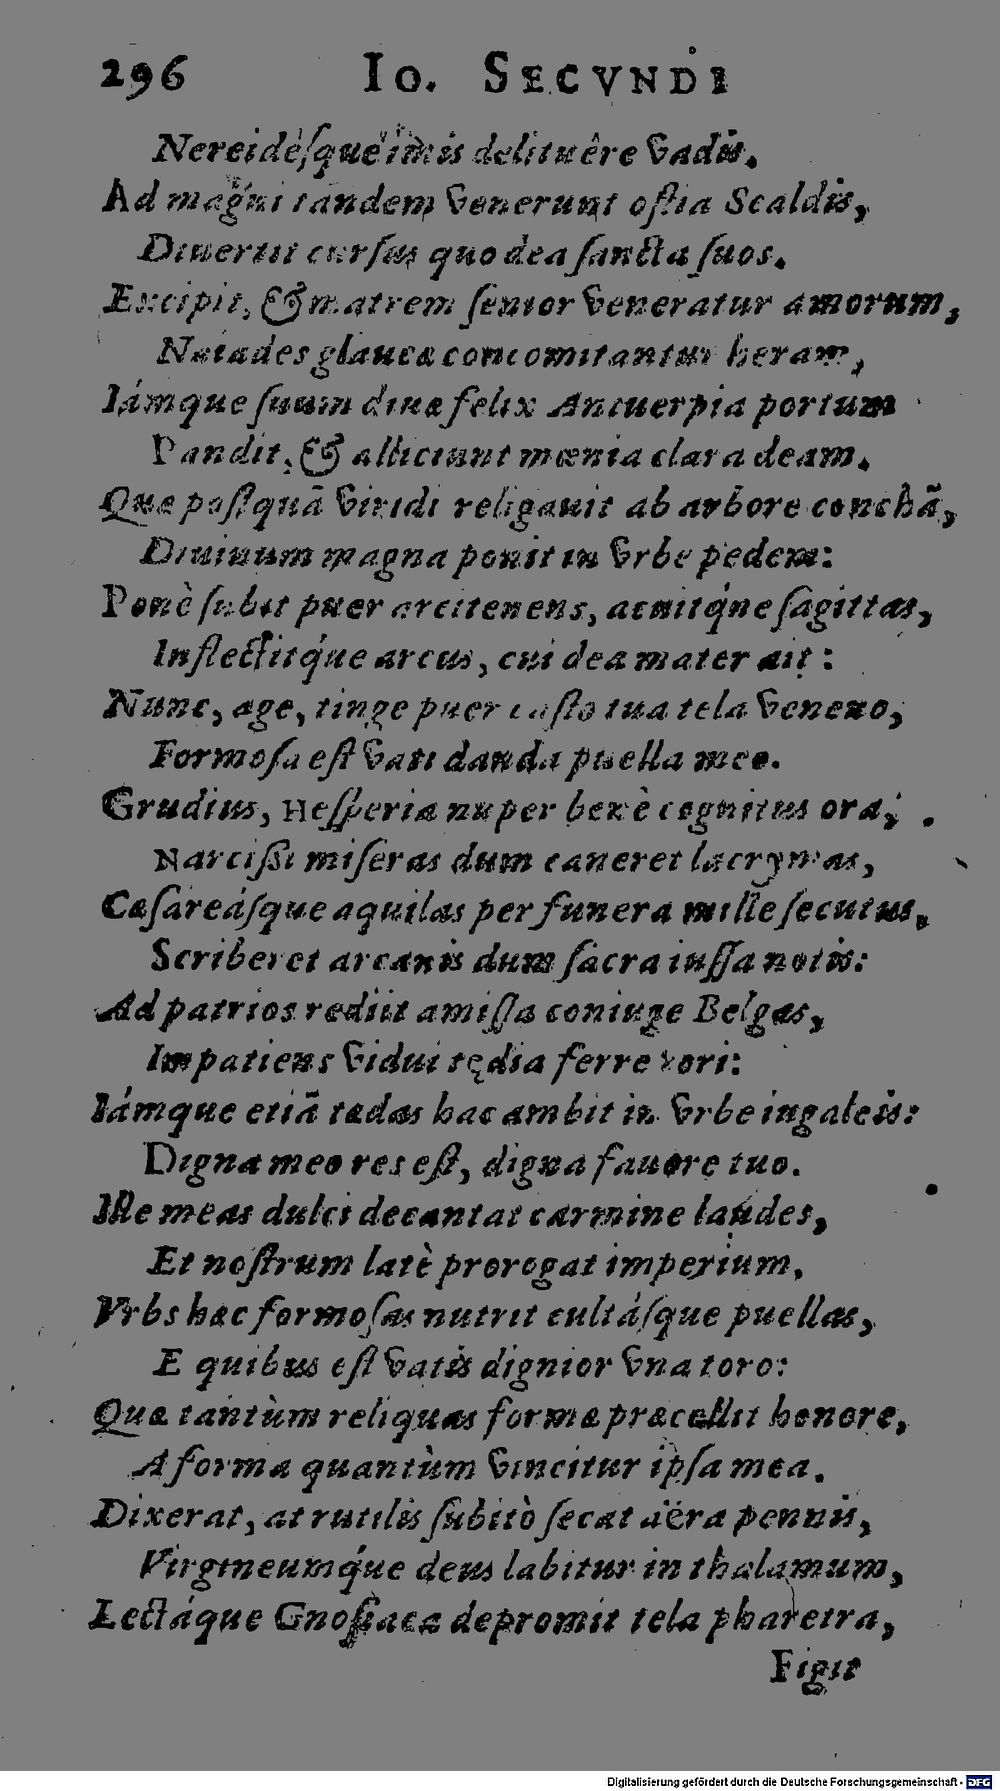 296 Io. Secvndi
Nereidésque imis delituêre vadis.
Ad magni tandem venerunt ostia Scaldis,
Diuertit cursus quo dea sancta suos.
Excipit, & matrem senior veneratur amorum,
Naiades glaucæ concomitantur heram,
Iámque suum diuæ felix Antuerpia portum
Pandit, & alliciunt mœnia clara deam.
Quæ postquã viridi religauit ab arbore conchã,
Diuinum magna ponit in vrbe pedem:
Ponè subit puer arcitenens, acuitq́ue sagittas,
Inflectitq́ue arcus, cui dea mater ait:
Nunc, age, tinge puer casto tua tela veneno,
Formosa est vati danda puella meo.
Grudius, Hesperiæ nuper benè cognitus oræ,
Narcissi miseras dum caneret lacrymas,
Cæsareásque aquilas per funera mille secutus,
Scriberet arcanis dum sacra iussa notis:
Ad patrios rediit amissa coniuge Belgas,
Impatiens vidui tędia ferre tori:
Iámque etiã tædas hac ambit in vrbe iugaleis:
Digna meo res est, digna fauore tuo.
Ille meas dulci decantat carmine laudes,
Et nostrum latè prorogat imperium.
Vrbs hæc formosas nutrit cultásque puellas,
E quibus est vatis dignior vna toro:
Quæ tantùm reliquas formæ præcellit honore,
A forma quantùm vincitur ipsa mea.
Dixerat, at rutilis subitò secat aëra pennis,
Virgineumq́ue deus labitur in thalamum,
Lectáque Gnossiaca depromit tela pharetra,
Figit
Digitalisierung gefördert durch die Deutsche Forschungsgemeinschaft - DFG